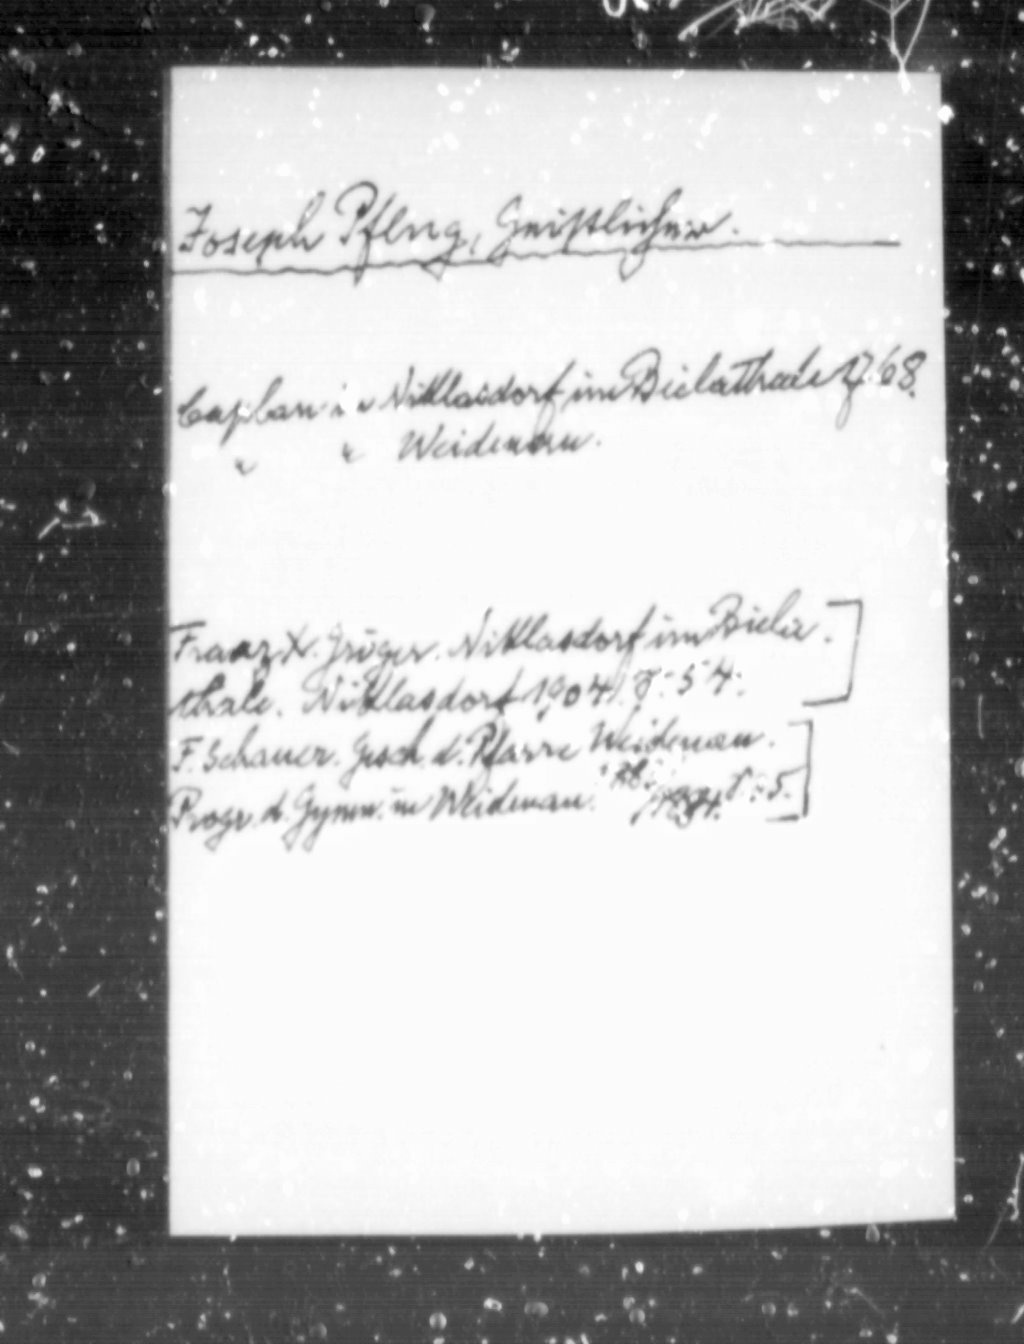 Joseph Pflug, Geistlicher.
Caplan in Niklasdorf im Bielathale 1768.
" " Weidenau.
Franz X. Jüger. Niklasdorf im Biela-
thale. Niklasdorf 1904. S. 54.
F. Schauer. Gesch. d. Pfarre Weidenau.
Progr. d. Gymn. in Weidenau. S. 5.